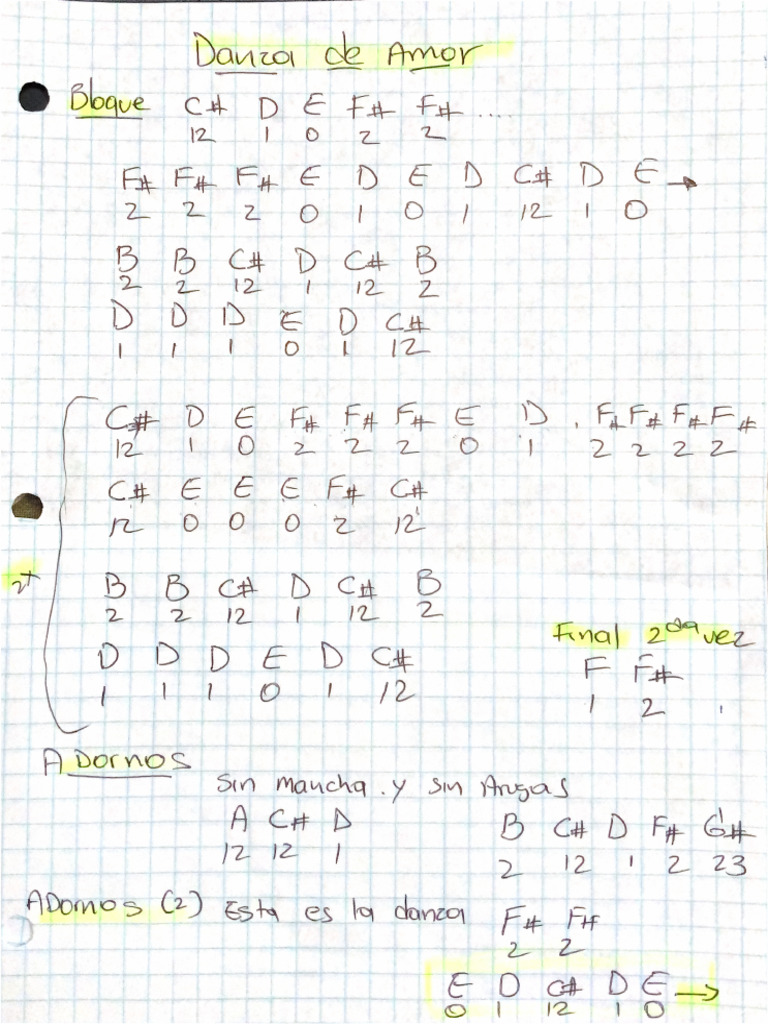 Danza de Amor
Bloque C# D E F# F# ....
12 1 0 2 2
F# F# F# E D E D C# D E →
2 2 2 0 1 0 1 12 1 0
B B C# D C# B
2 2 12 1 12 2
D D D E D C#
1 1 1 0 1 12
C# D E F# F# F# E D . F# F# F# F#
12 1 0 2 2 2 0 1 2 2 2 2
C# E E E F# C#
12 0 0 0 2 12
2+
B B C# D C# B
2 2 12 1 12 2
D D D E D C#
1 1 1 0 1 12
Final 2da vez
F F#
1 2
ADornos
Sin mancha y sin Arugas
A C# D
12 12 1
B C# D F# G#
2 12 1 2 23
ADornos (2) Esta es la danza F# F#
2 2
E D C# D E →
0 1 12 1 0